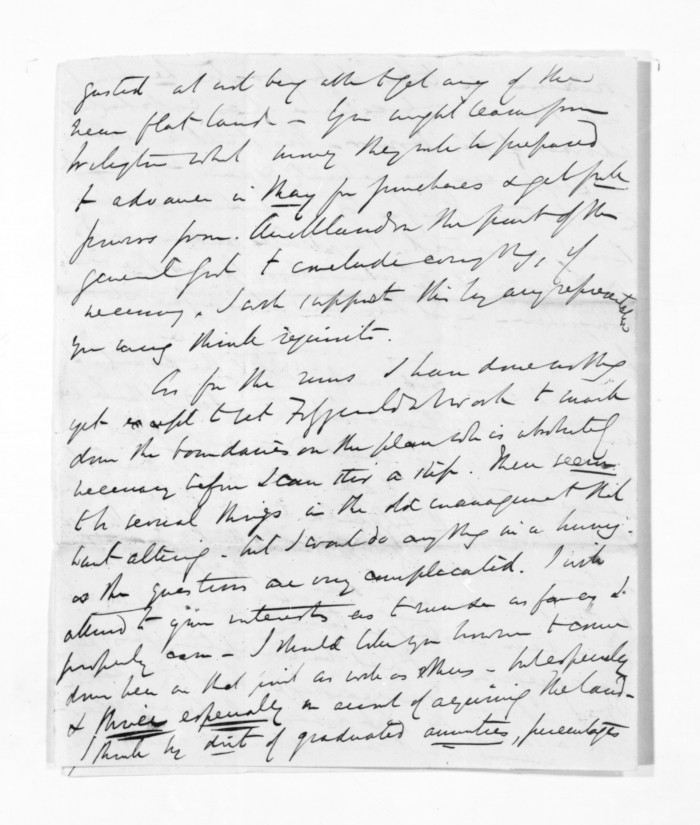 gusted at not being able to get any of the
near flat land – You might learn from
what money they wd be prepared
to advance in May for purchases & get full
powers from Auckland on the part of the
general govt to conclude everything, if
necessary. I wd support this by any representation
you may think requisite.
As for the runs I have done nothing
yet except to set Fitzgerald to work to mark
down the boundaries on the plan wh is absolutely
necessary before I can stir a step. There seem
to be several things in the old management that
want altering – but I wont do anything in a hurry
as the questions are very complicated. I will
attend to your interests as to runs as far as I
properly can – I should like you however to come
down here on that point as well as others – but especially
& thrice especially on account of acquiring the land –
I think by dint of graduated annuities, percentages